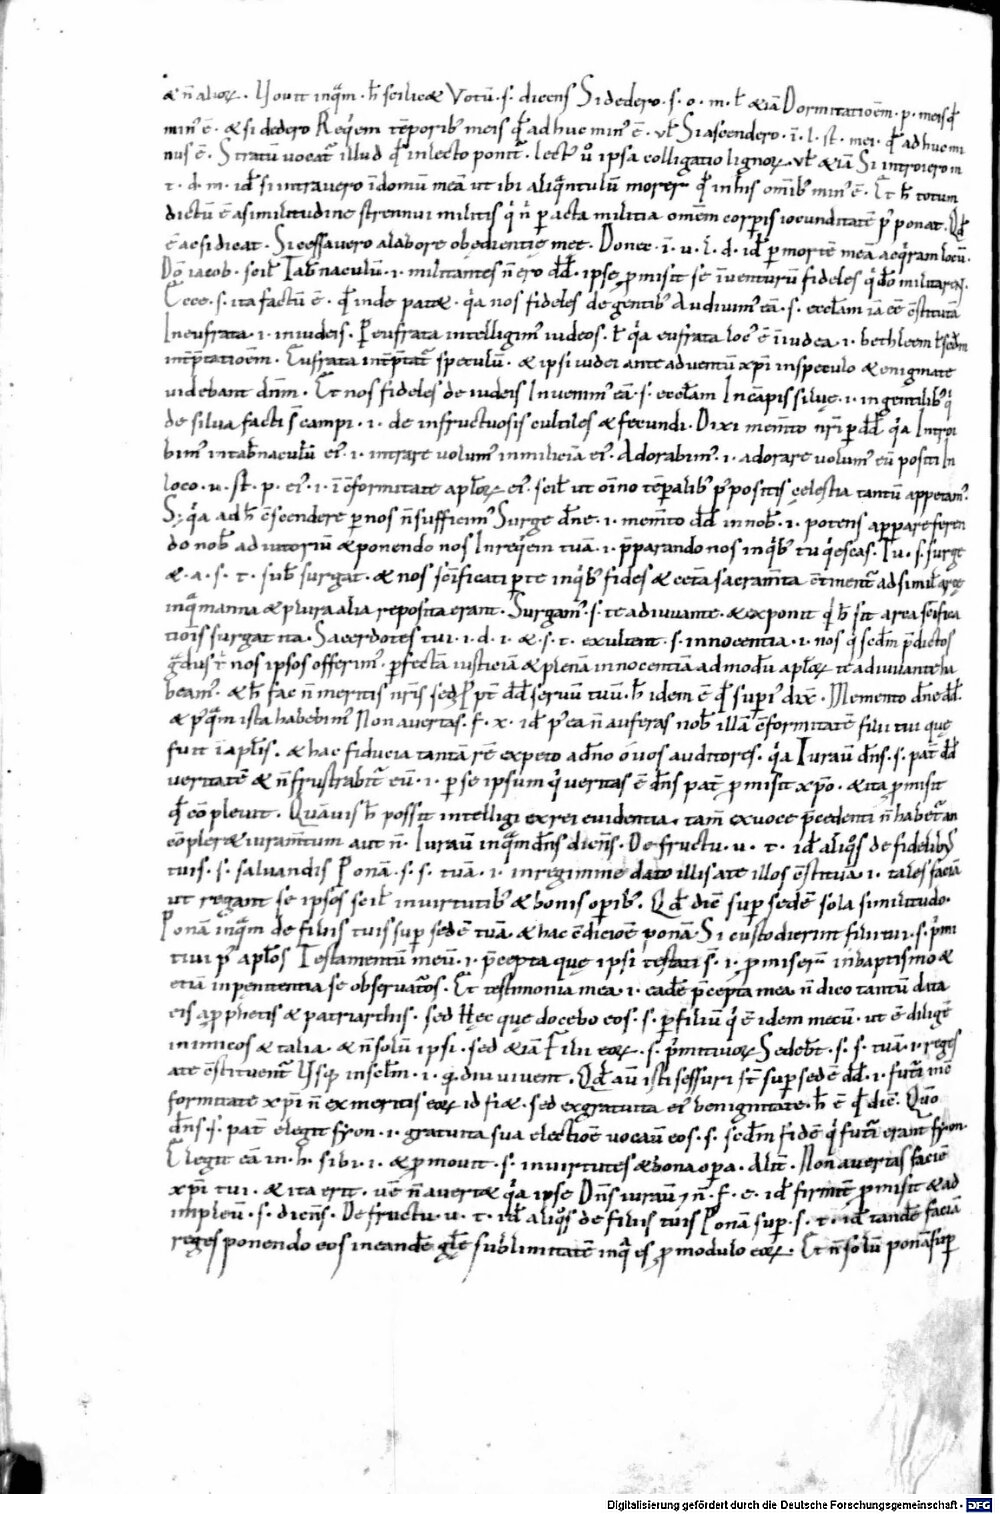 & n̄ alioꝝ. Uouit inq̄m. h̄ scilic& Votū. s. dicens Si dedero. s. o. m. ł &iā Dormitatioēm. p. meis qđ
min᾿ ē. & si dedero Req̄em tēporib᾿ meis qđ adhuc min᾿ ē. vł Si ascendero. ī. l. st̄. mei. qđ adhuc mi
nus ē. Stratū uocat᾿ illud qđ in lecto ponit᾿. lect᾿ ū ipsa colligatio lignoꝝ. vł &iā Si introiero in
t. d. m. id̄ si intrauero ī domū meā ut ibi aliq̄ntulū morer qđ in his omīb᾿ min᾿ ē. Et h̄ totum
dictū ē a similitudine strennui militis q̇ n̄ pacta militia omēm corp̄is iocunditatē p᾿ponat. Qđ
ē ac si dicat. Si cessauero a labore obedientię meę. Donec. ī. u. l. d. id̄ p mortē meā acq̇ram locū.
Dō iacob. scił Tab̄naculū. i. militantes n̄ ero dđ. ipse ꝓmisit se īuenturū fideles q̇ dō militarēt.
Ecce. s. ita factū ē. qđ inde pat&. q̇a nos fideles de gentib᾿ Audiuim᾿ eā. s. eccłam iā eē ꝯstitutā
In eufrata. i. in iudeis. P eufrata intelligim᾿ iudeos. ł q̇a eufrata loc᾿ ē ī iudea. i. bethleem ł scdm
intp̄tatioēm. Eufrata intp̄tat᾿ speculū. & ipsi iudei ante aduentū xp̄i in speculo & enigmate
uidebant dnm̄. Et nos fideles de iudeis Inuenim᾿ eā. s. eccłam In cāpis siluę. i. in gentilib᾿ q̇
de silua facti s̄ campi. i. de infructuosis cultiles & fecundi. Dixi mem̄to nr̄i p dđ q̇a Introi
bim᾿ in tab̄naculū ei᾿. i. intrare volum᾿ in miliciā ei᾿. Adorabim᾿. i. adorare uolum᾿ eū positi In
loco. u. st̄. p. ei᾿. i. ī ꝯformitate apłoꝝ ei᾿. scił ut oīno tēpalib᾿ p᾿positis cęlestia tantū appetam᾿.
S; q̇a ad h̄ ꝯscendere p nos n̄ sufficim᾿ Surge dn̄e. i. mem̄to dđ in nob̄. i. potens appare feren
do nob̄ adiutoriū & ponendo nos In req̇em tuā. i. p̄parando nos in q̇b᾿ tu q̇escas. Tu. s. surge
& a. s. t. sub̄ surgat. & nos scīficati p te in q̇b᾿ fides & cetā sacram̄ta ꝯtinent᾿ ad simił arcę
in q̄ manna & plura alia reposita erant. Surgam᾿. s. te adiuuante. & exponit q̇ h̄ sit arca scīfica
tiois surgat ita. Sacerdotes tui. i. d. i. & s. t. exultent. s. innocentia. i. nos q̇ scdm p̄dictos
g̊dus nos ipsos offerim᾿. pfectā iusticiā & plenā innocentiā ad modū apłoꝝ te adiuuante ha
beam᾿. & h̄ fac n̄ meritis nr̄is sed Ppt dđ seruū tuū. h̄ idem ē qđ supi᾿ dix̄. Memento dn̄e dđ.
& p᾿q̄m ista habebim᾿ Non auertas. f. x. id̄ p᾿ ea n̄ auferas nob̄ illā ꝯformitatē filii tui quę
fuit ī apłis. & hac fiducia tantā rē expeto ad n̄o ō uos auditores. q̇a Iurauit dn̄s. s. pat᾿ dđ
veritatē & n̄ frustrabit᾿ eū. i. p se ipsum q̇ ueritas ē dn̄s pat᾿ ꝓmisit xp̄o. & ita ꝓmisit
qđ cōpleuit. Quāuis h̄ possit intelligi ex rei euidentia. tam̄ ex uoce p̄cedenti n̄ habet᾿ an
cōpler& iuram̄tum aut n̄. Iurauit inq̄m dn̄s dicens. De fructu. u. t. id̄ aliq̊s de fidelib᾿
tuis. s. saluandis Ponā. s. s. tuā. i. in regimine dato illis a te illos ꝯstituā. i. tales faciā
ut regant se ipsos scił in uirtutib᾿ & bonis opib᾿. Qđ diē sup sedē sola similitudo.
Ponā inq̄m de filiis tuis sup sedē tuā. & hac ꝯdicioē ponā. Si custodierint filii tui. s. p᾿mi
tiui p᾿ apłos Testamentū meū. i. p̄cepta quę ipsi testati s̄. i. ꝓmiser̄ in baptismo &
etiā in penitentia se obseruat᾿os. Et testimonia mea. i. eadē p̄cepta mea n̄ dico tantū data
eis a ꝓphetis & patriarchis. sed Hęc quę docebo eos. s. p filiū q̇ ē idem mecū. ut ē dilige
inimicos & talia. & n̄ solū ipsi. sed &iā Filii eoꝝ. s. p᾿mitiuoꝝ Sedebt̄. s. s. tuā. i. reges
a te ꝯstituent᾿ Usq; in sclm̄. i. q̄diu uiuent. Qđ aū isti sessuri s̄t sup sedē dđ. i. futi in cō
formitate xp̄i n̄ ex meritis eoꝝ id fi&. sed ex gratuita ei᾿ benignitate. h̄ ē qđ diē. Quō
dn̄s. s. pat᾿ elegit syon. i. gratuita sua electioē uocauit eos. s. scdm fidē q̇ futi erant syon.
Elegit eā in. h. sibi. i. & ꝓmouit. s. in uirtutes & bona opa. Alit᾿. Non auertas faciē
xp̄i tui. & ita erit. uē n̄ auert& q̇a ipse Dn̄s iurauit & n̄. f. e. id̄ firmit᾿ ꝓmisit & ad
impleuit. s. dicens. De fructu. u. t. id̄ aliq̊s de filiis tuis Ponā sup. s. t. id̄ tandē faciā
reges ponendo eos in eandē głę sublimitatē in q̄ es ꝓ modulo eoꝝ. Et n̄ solū ponā sup
Digitalisierung gefördert durch die Deutsche Forschungsgemeinschaft - DFG